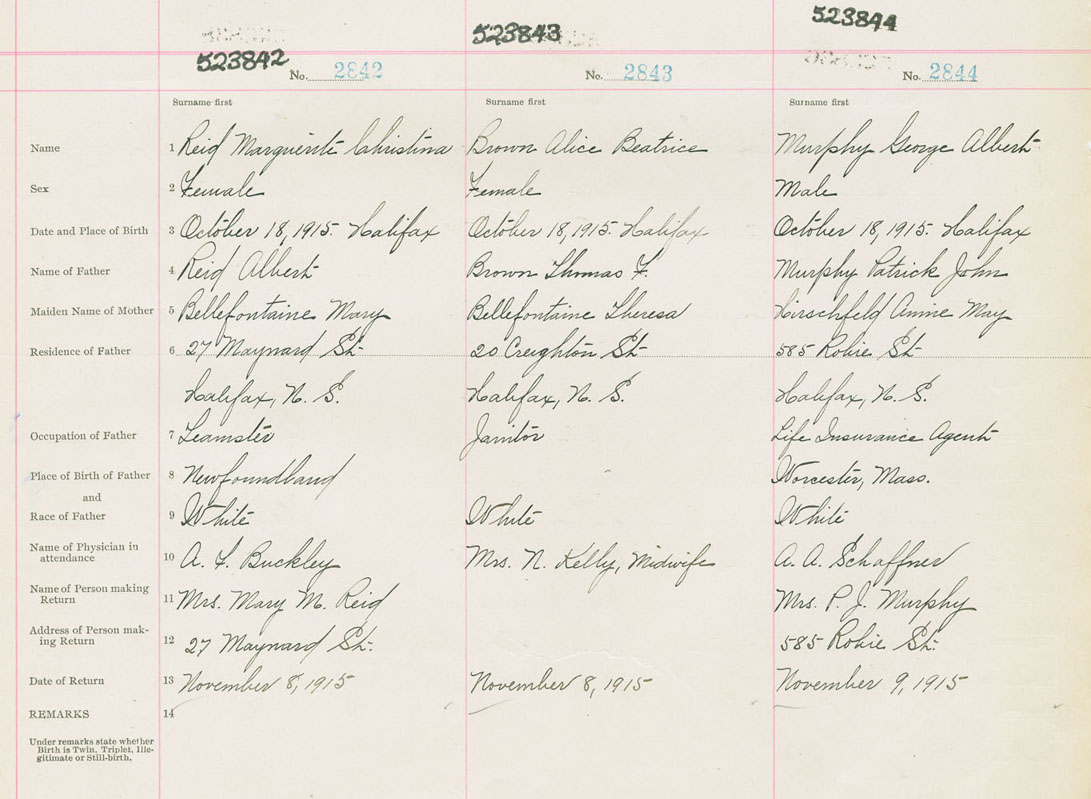 523842 523843 523844
No. 2842 No. 2843 No. 2844
Surname first Surname first Surname first
Name 1 Reid Marguerite Christina Brown Alice Beatrice Murphy George Albert
Sex 2 Female Female Male
Date and Place of Birth 3 October 18, 1915. Halifax October 18, 1915. Halifax October 18, 1915. Halifax
Name of Father 4 Reid Albert Brown Thomas F. Murphy Patrick John
Maiden Name of Mother 5 Bellefontaine Mary Bellefontaine Theresa Hirschfeld Annie May
Residence of Father 6 27 Maynard St. 20 Creighton St. 585 Robie St.
Halifax, N. S. Halifax, N. S. Halifax, N. S.
Occupation of Father 7 Teamster Janitor Life Insurance Agent
Place of Birth of Father 8 Newfoundland Worcester, Mass.
and
Race of Father 9 White White White
Name of Physician in
attendance 10 A. F. Buckley Mrs. N. Kelly, Midwife A. A. Schaffner
Name of Person making
Return 11 Mrs. Mary M. Reid Mrs. P. J. Murphy
Address of Person mak-
ing Return 12 27 Maynard St. 585 Robie St.
Date of Return 13 November 8, 1915 November 8, 1915 November 9, 1915
REMARKS 14
Under remarks state whether
Birth is Twin, Triplet, Ille-
gitimate or Still-birth.